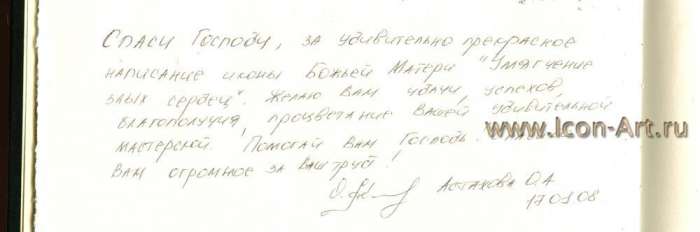 Спаси Господи, за удивительно прекрасное
написание иконы Божьей Матери "Умягчение
злых сердец". Желаю Вам удачи, успехов,
благополучия, процветание Вашей удивительной
мастерской. Помогай Вам Господь.
www.Icon-Art.ru
Вам огромное за Ваш труд!
Астахова О.А.
17.01.08